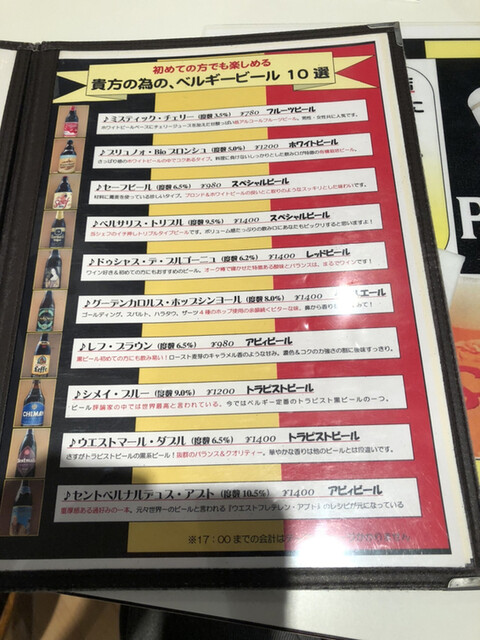 初めての方でも楽しめる
貴方の為の、ベルギービール 10 選
♪ミスティック・チェリー (度数 3.5%) ¥780 フルーツビール
ホワイトビールベースにチェリージュースを加えた甘酸っぱい低アルコールフルーツビール。男性・女性共に人気です。
♪ブリュノォ・Bio ブロンシュ (度数 5.0%) ¥1200 ホワイトビール
さっぱり感のホワイトビールの中でコクがあるタイプ。料理に負けないしっかりとした飲み口が特徴の有機栽培ビール。
♪セーフビール (度数 6.5%) ¥980 スペシャルビール
材料に蕎麦を使っている珍しいタイプ。ブロンド&ホワイトビールの良いとこ取りのようなスッキリとした味わいです。
♪ベルサリス・トリプル (度数 9.5%) ¥1400 スペシャルビール
当シェフのイチ押しトリプルタイプビールです。ボリューム感たっぷりの飲み口にあなたもビックリすると思いますよ!
♪ドゥシャス・デ・ブルゴーニュ (度数 6.2%) ¥1400 レッドビール
ワイン好き&初めての方にもおすすめのビール。オーク樽で寝かせた特徴ある酸味とバランスは、まるでワインです!
♪グーデンカロルス・ホップシンヨール (度数 8.0%) ¥1400 エール
ゴールディング、スパルト、ハラタウ、ザーツ 4 種のホップ使用の余韻続くビターな味。
♪レフ・ブラウン (度数 6.5%) ¥980 アビィビール
黒ビール初めての方にも飲み易い!ロースト麦芽のキャラメル香のような甘み。濃色&コクの力強さの割に後味すっきり。
♪シメイ・ブルー (度数 9.0%) ¥1200 トラピストビール
ビール評論家の中では世界最高と言われている。今ではベルギー定番のトラピスト黒ビールの一つ。
♪ウエストマール・ダブル (度数 6.5%) ¥1400 トラピストビール
さすがトラピストビールの黒系ビール!抜群のバランス&クオリティー。華やかな香りは他のビールとは段違いです。
♪セントベルナルデュス・アプト (度数 10.5%) ¥1400 アビィビール
重厚感ある通好みの一本。元々世界一のビールと言われる『ウエストフレテレン・アプト』のレシピが元になっている
※17:00 までの会計は